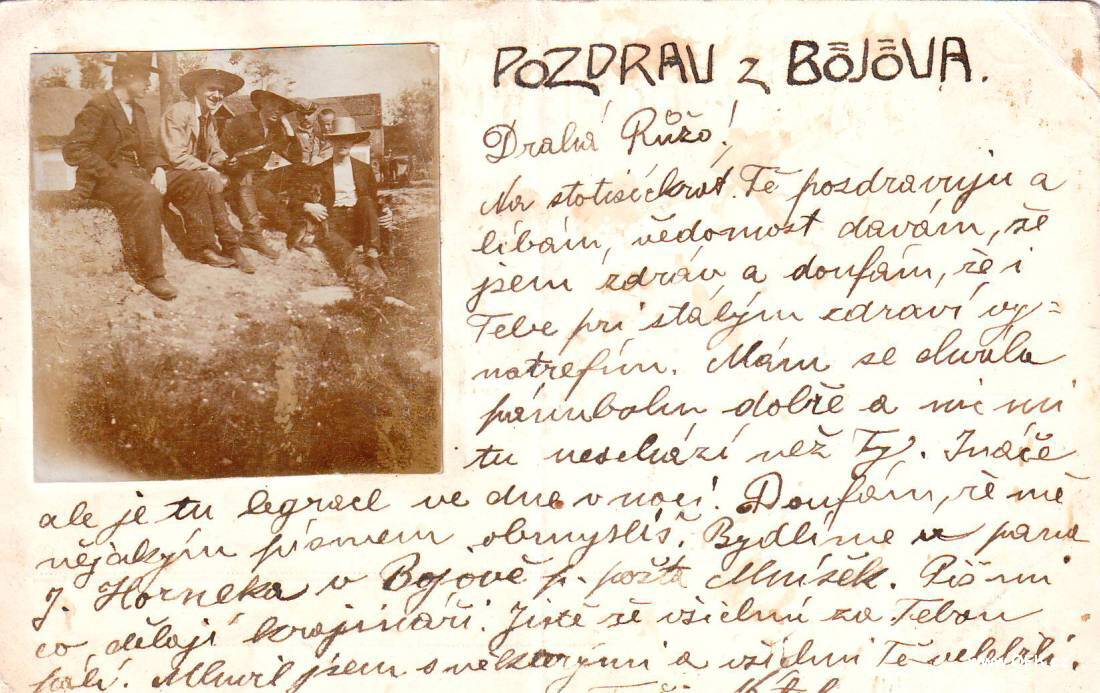 POZDRAV z BOJOVA.
Drahá Růžo!
Na stotisíckrát Tě pozdravuju a
líbám, vědomost davám, že
jsem zdráv a doufám, že i
Tebe při stálým zdraví vy=
natrefím. Mám se chvála
pámbohu dobře a nic mi
tu neschází než Ty. Ináče
ale je tu legrace ve dne v noci. Doufám, že mě
nějakým písmem obmyslíš. Bydlíme u pana
J. Horneka v Bojově p. pošta Mníšek. Piš mi
co dělají krajináři. Jistě že všichni za Tebou
pálí. Mluvil jsem s některými a všichni Tě velebí.